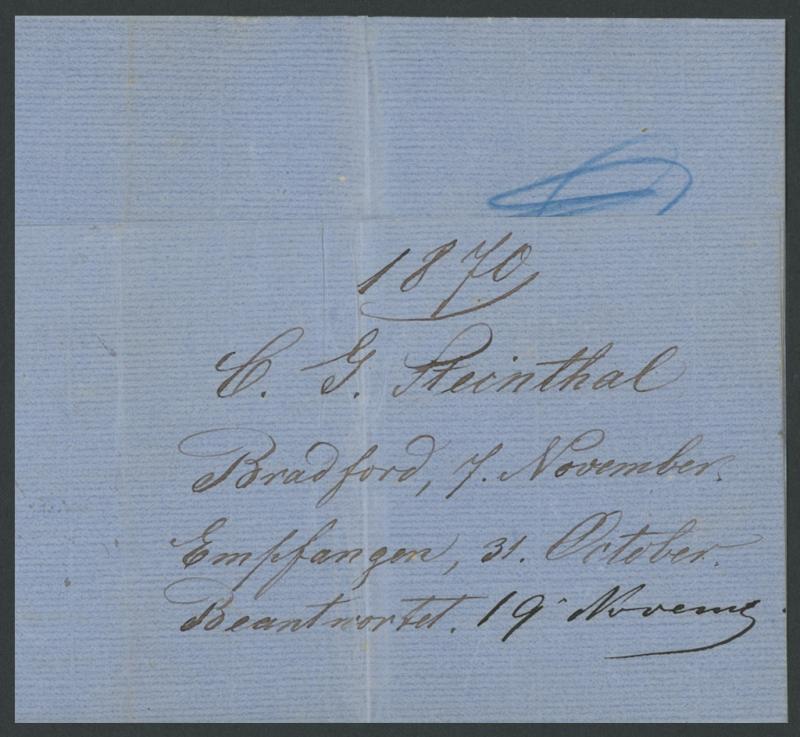 1870
C. G. Steinthal
Bradford, 7. November.
Empfangen, 31. October.
Beantwortet. 19 Novemb